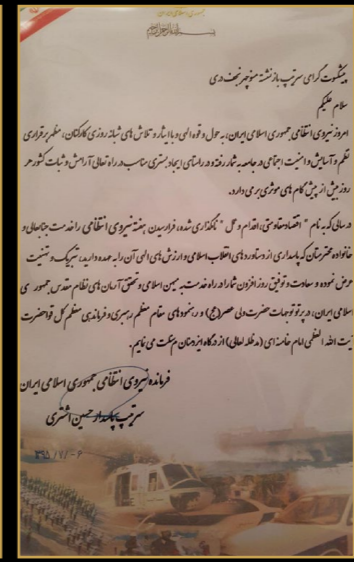 بسم الله الرحمن الرحیم
پیشکسوت گرامی سرتیپ بازنشسته منوچهر نجف دری
سلام علیکم
امروز نیروی انتظامی جمهوری اسلامی ایران، به حول و قوه الهی و با ایثار و تلاش های شبانه روزی کارکنان، مظهر برقراری
نظم و آسایش و امنیت اجتماعی در جامعه به شمار رفته و در راستای ایجاد بستری مناسب در راه تعالی آرامش و ثبات کشور هر
روز بیش از پیش گام های موثری برمی دارد.
در سالی که به نام "اقتصاد مقاومتی، اقدام و عمل" نامگذاری شده، فرارسیدن هفته نیروی انتظامی را خدمت جنابعالی و
خانواده محترمتان که پاسداری از دستاوردهای انقلاب اسلامی و ارزش های الهی آن را به عهده دارید، تبریک و تهنیت
عرض نموده و سعادت و توفیق روز افزون شما را در راه خدمت به میهن اسلامی و تحقق آرمان های نظام مقدس جمهوری
اسلامی ایران، در پرتو توجهات حضرت ولی عصر (عج) و رهنمودهای مقام معظم رهبری و فرماندهی معظم کل قوا حضرت
آیت الله العظمی امام خامنه ای (مدظله العالی) از درگاه ایزد منان مسئلت می نمایم.
فرمانده نیروی انتظامی جمهوری اسلامی ایران
سرتیپ پاسدار حسین اشتری